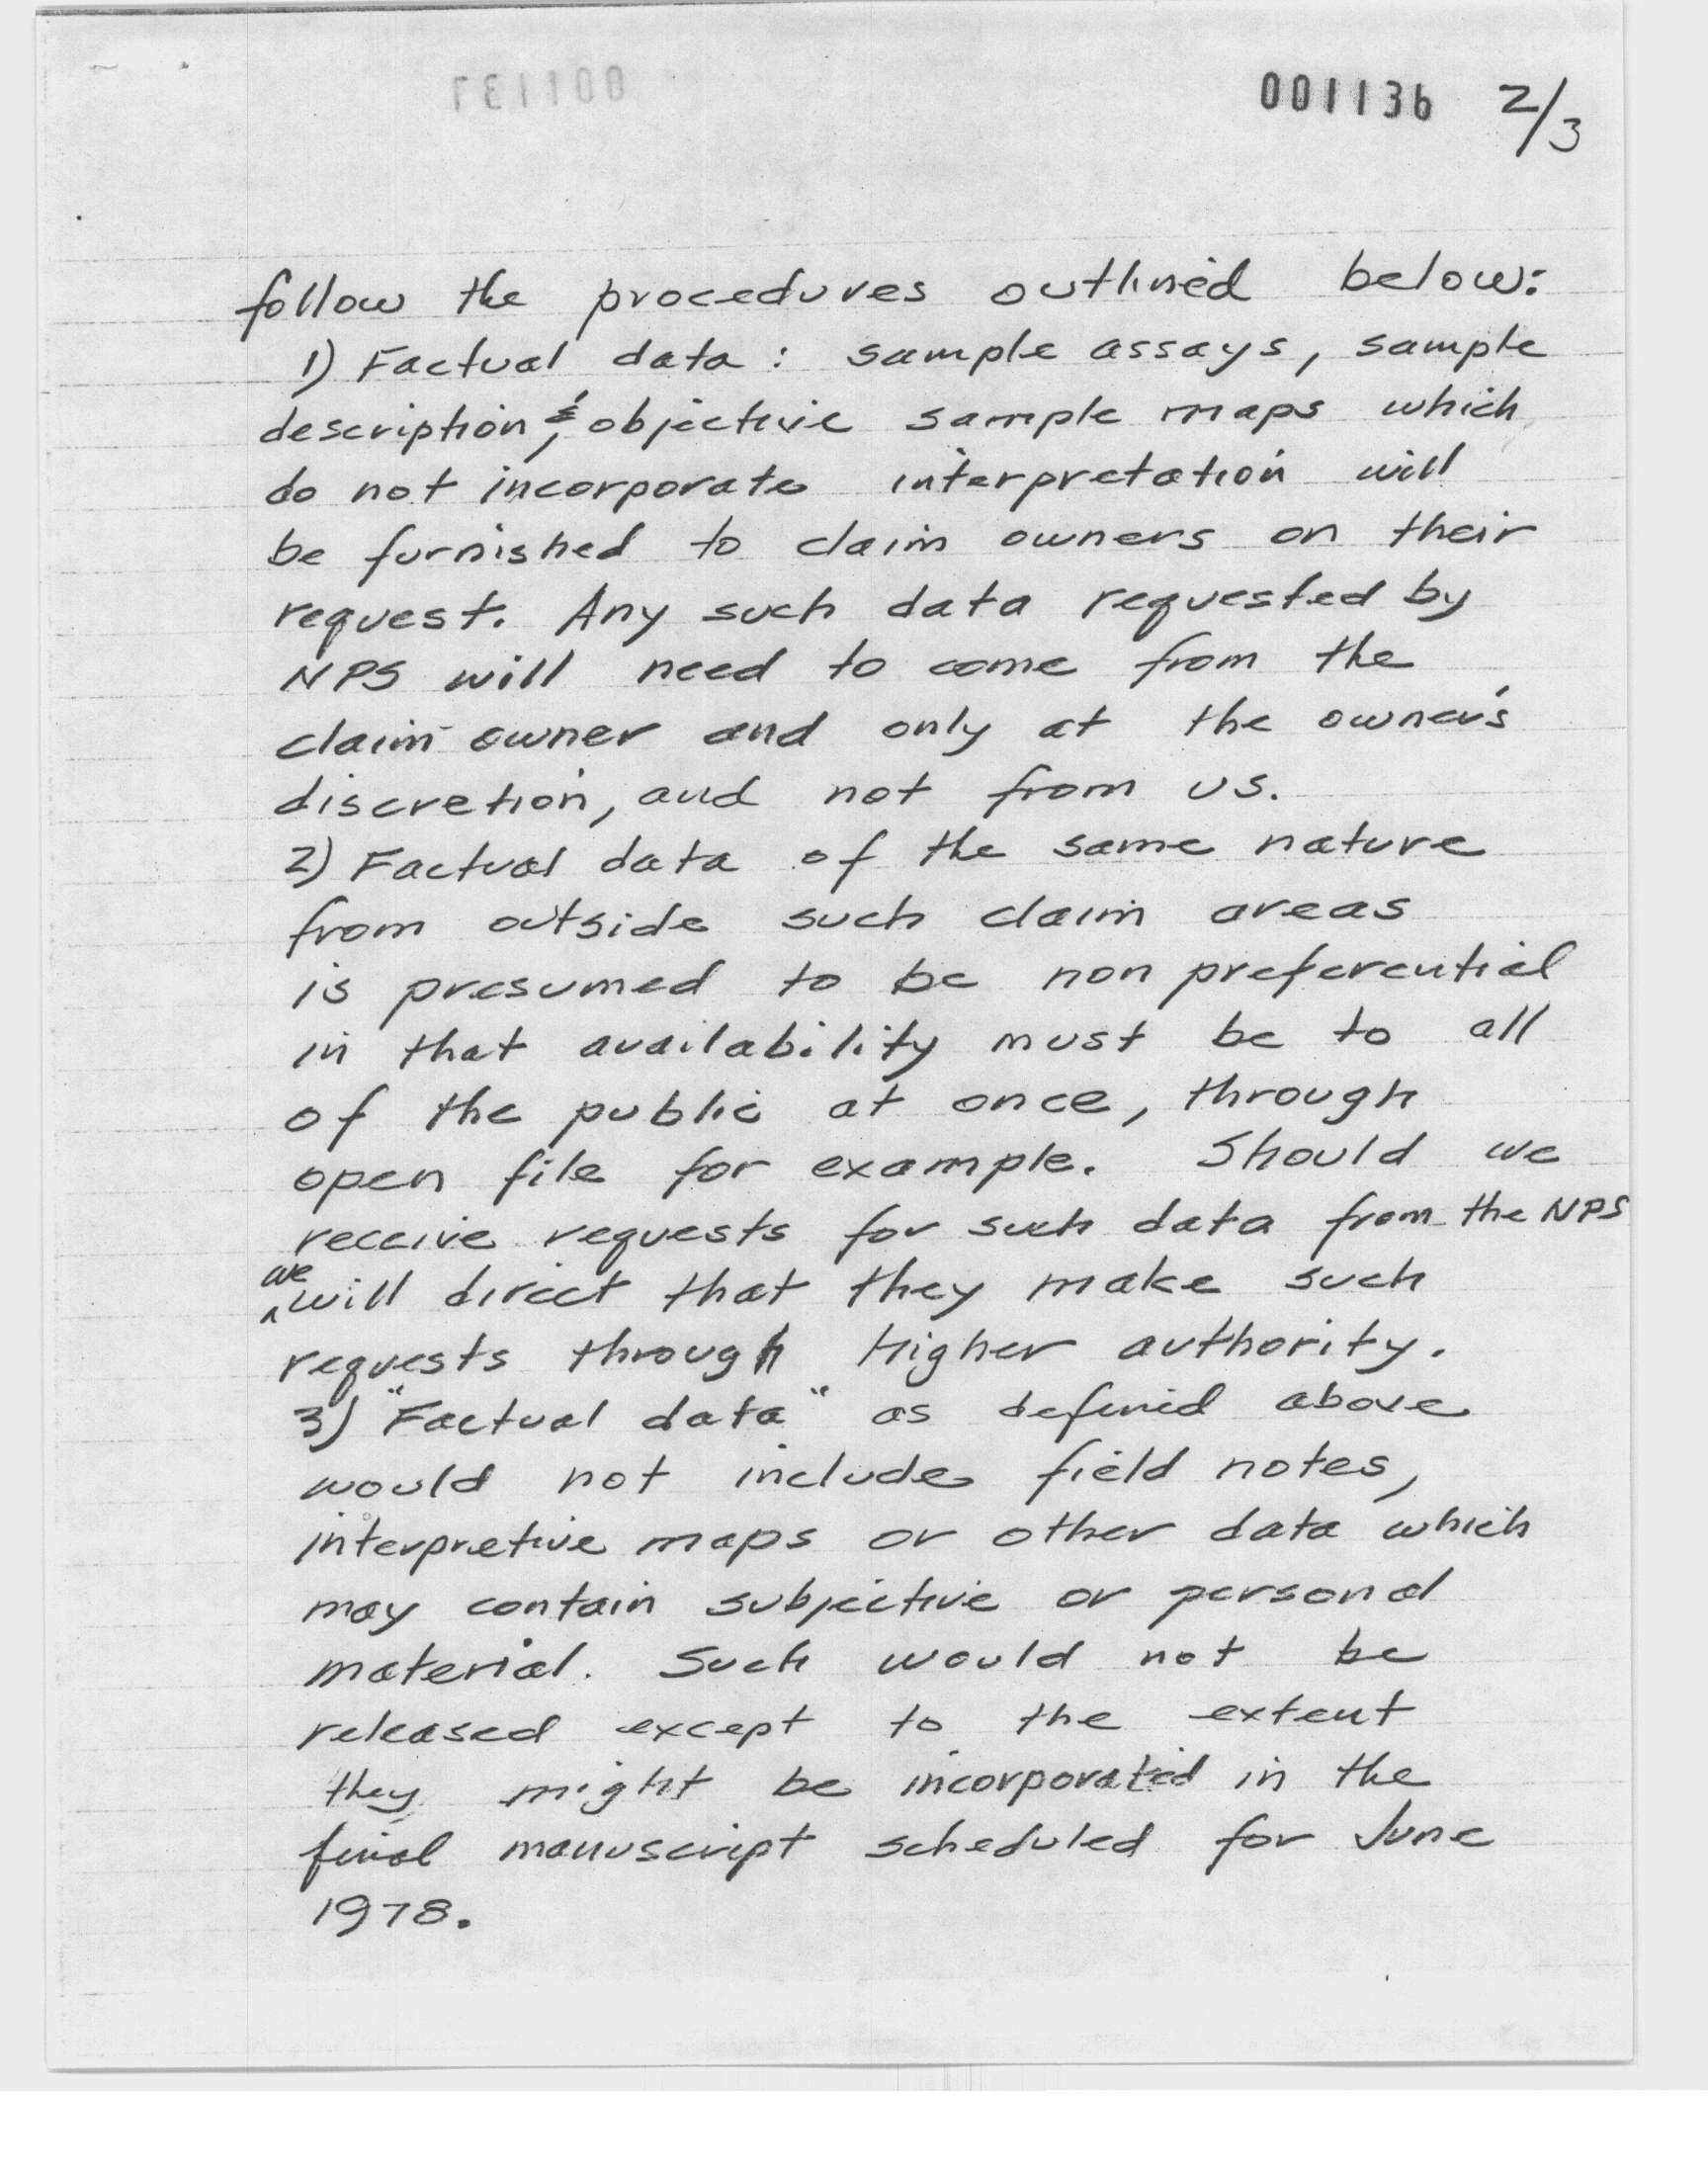 001137
001136 2/3
follow the procedures outlined below:
1) Factual data: sample assays, sample
description, & objective sample maps which
do not incorporate interpretation will
be furnished to claim owners on their
request. Any such data requested by
NPS will need to come from the
claim owner and only at the owner's
discretion, and not from us.
2) Factual data of the same nature
from outside such claim areas
is presumed to be non preferential
in that availability must be to all
of the public at once, through
open file for example. Should we
receive requests for such data from the NPS
we will direct that they make such
requests through Higher authority.
3) "Factual data" as defined above
would not include field notes,
interpretive maps or other data which
may contain subjective or personal
material. Such would not be
released except to the extent
they might be incorporated in the
final manuscript scheduled for June
1978.